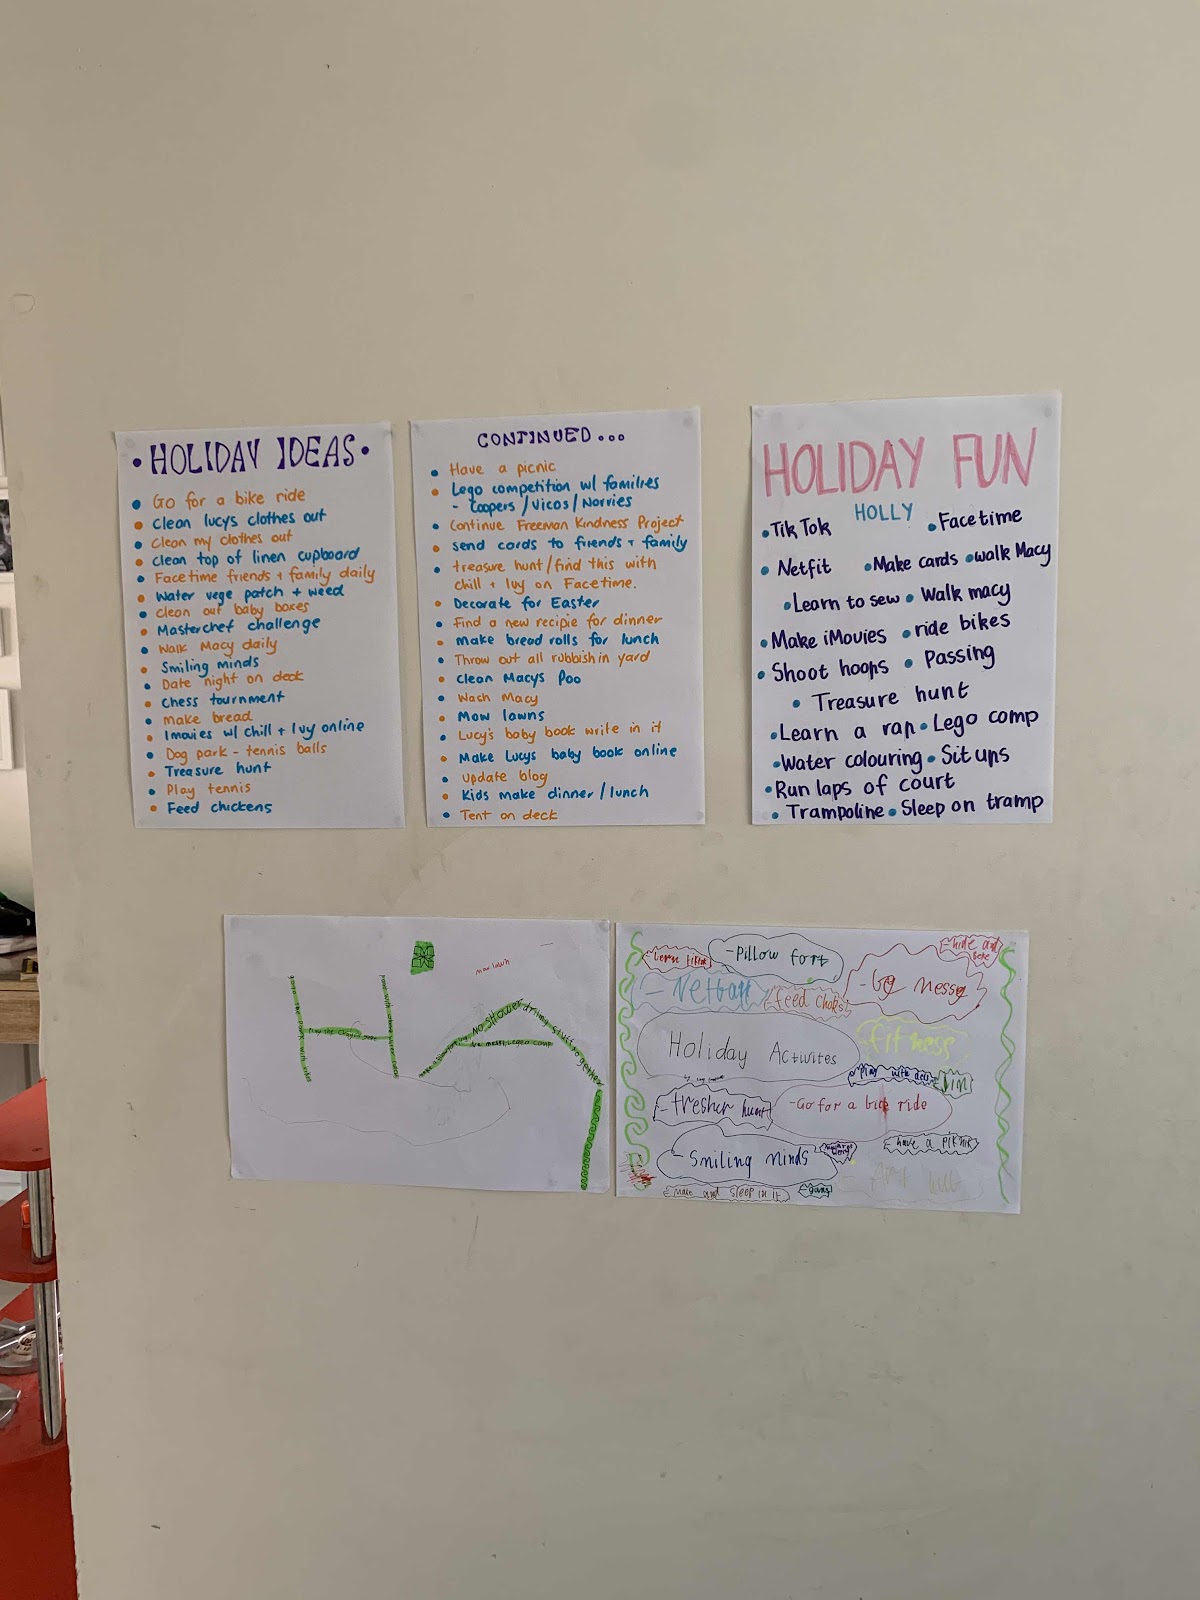 • HOLIDAY IDEAS •
• Go for a bike ride
• Clean lucys clothes out
• Clean my clothes out
• Clean top of linen cupboard
• Facetime friends + family daily
• Water vege patch + weed
• Clean out baby boxes
• Masterchef challenge
• Walk Macy daily
• Smiling minds
• Date night on deck
• Chess tournment
• Make bread
• Imovies w/ chill + Ivy online
• Dog park - tennis balls
• Treasure hunt
• Play tennis
• Feed chickens
CONTINUED...
• Have a picnic
• Lego competition w/ families
- Coopers / Vicos / Norries
• Continue Freeman Kindness Project
• Send cards to friends + family
• treasure hunt / find this with
chill + Ivy on Facetime.
• Decorate for Easter
• Find a new recipie for dinner
• Make bread rolls for lunch
• Throw out all rubbish in yard
• Clean Macys Poo
• Wash Macy
• Mow lawns
• Lucy's baby book write in it
• Make Lucys baby book online
• Update blog
• Kids make dinner / lunch
• Tent on deck
HOLIDAY FUN
HOLLY
• Tik Tok • Facetime
• Netfit • Make cards • walk Macy
• Learn to sew • Walk macy
• Make iMovies • ride bikes
• Shoot hoops • Passing
• Treasure hunt
• Learn a rap • Lego comp
• Water colouring • Sit ups
• Run laps of court
• Trampoline • Sleep on tramp
mow lawn
NO SHOWER doing stuff together
be messy Lego comp
- Pillow fort
hide and
- Netball
feed choks
- be messy
Holiday Activites
fitness
- tresher hunt
- Go for a bick ride
have a piknik
- Smiling minds
make and sleep in it